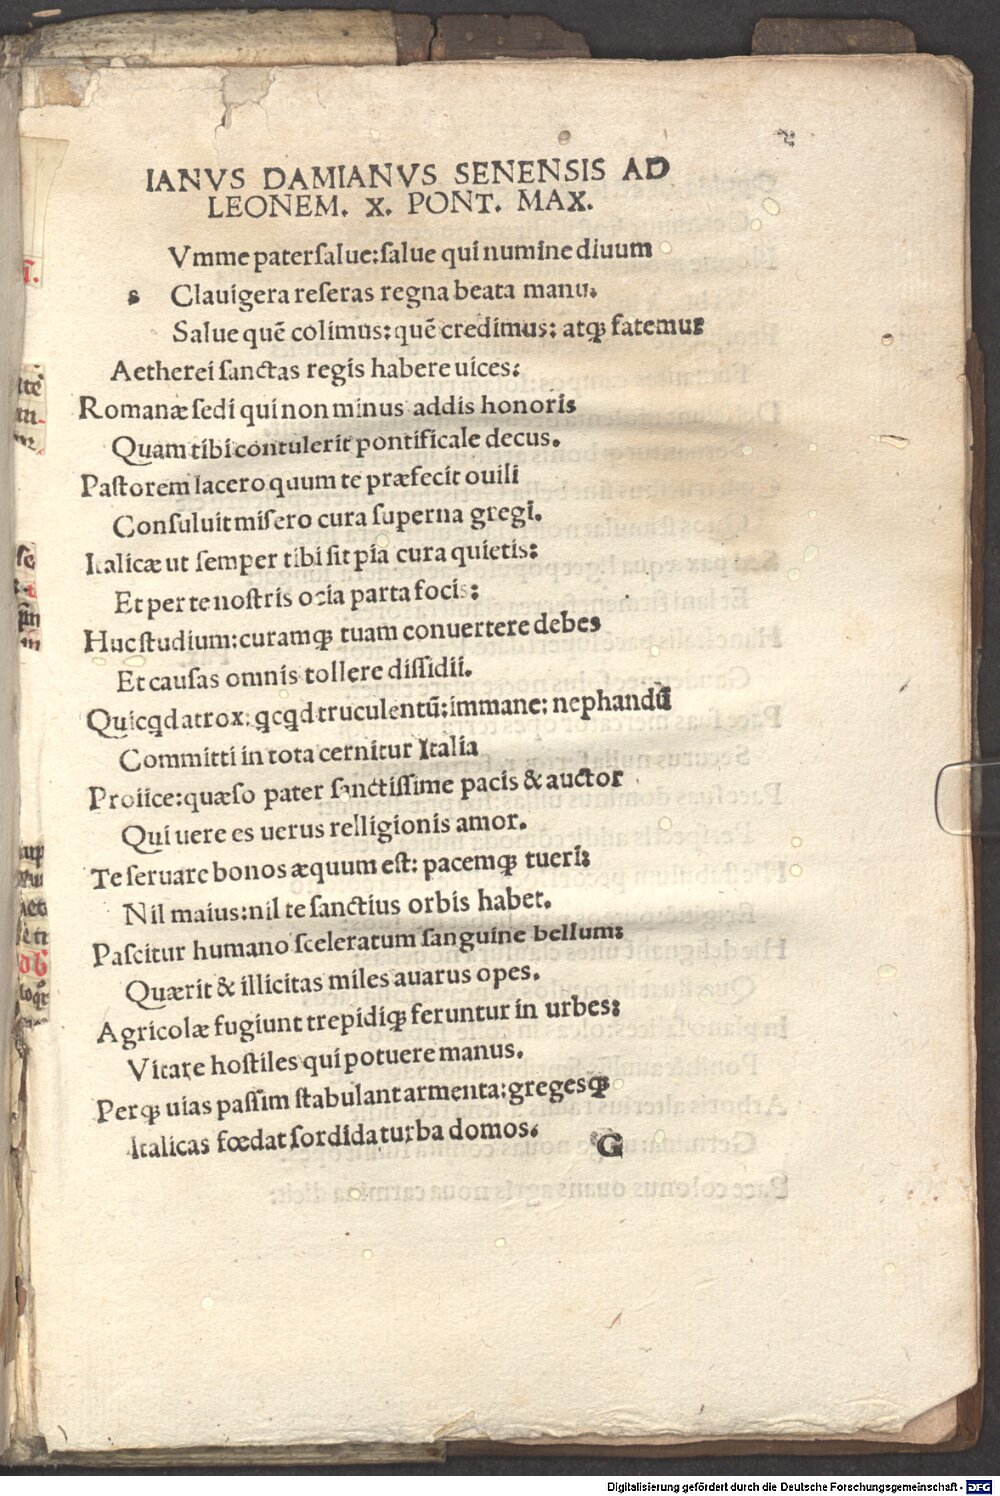 IANVS DAMIANVS SENENSIS AD
LEONEM. X. PONT. MAX.
Vmme pater ſalue: ſalue qui numine diuum
s Clauigera reſeras regna beata manu.
Salue quē colimus: quē credimus: atqꝫ fatemur
Aetherei ſanctas regis habere uices:
Romanæ ſedi qui non minus addis honoris
Quam tibi contulerit pontificale decus.
Paſtorem lacero quum te præfecit ouili
Conſuluit miſero cura ſuperna gregi.
Italicæ ut ſemper tibi ſit pia cura quietis:
Et per te noſtris ocia parta focis:
Huc ſtudium: curamqꝫ tuam conuertere debes
Et cauſas omnis tollere diſſidii.
Quicꝗd atrox: ꝗcꝗd truculentū: immane: nephandū
Committi in tota cernitur Italia
Proiice: quæſo pater ſanctiſſime pacis & auctor
Qui uere es uerus relligionis amor.
Te ſeruare bonos æquum eſt: pacemqꝫ tueri:
Nil maius: nil te ſanctius orbis habet.
Paſcitur humano ſceleratum ſanguine bellum:
Quærit & illicitas miles auarus opes.
Agricolæ fugiunt trepidiqꝫ feruntur in urbes:
Vitare hoſtiles qui potuere manus.
Perqꝫ uias paſſim ſtabulant armenta: gregesqꝫ
Italicas fœdat ſordida turba domos.
G
Digitalisierung gefördert durch die Deutsche Forschungsgemeinschaft - DFG